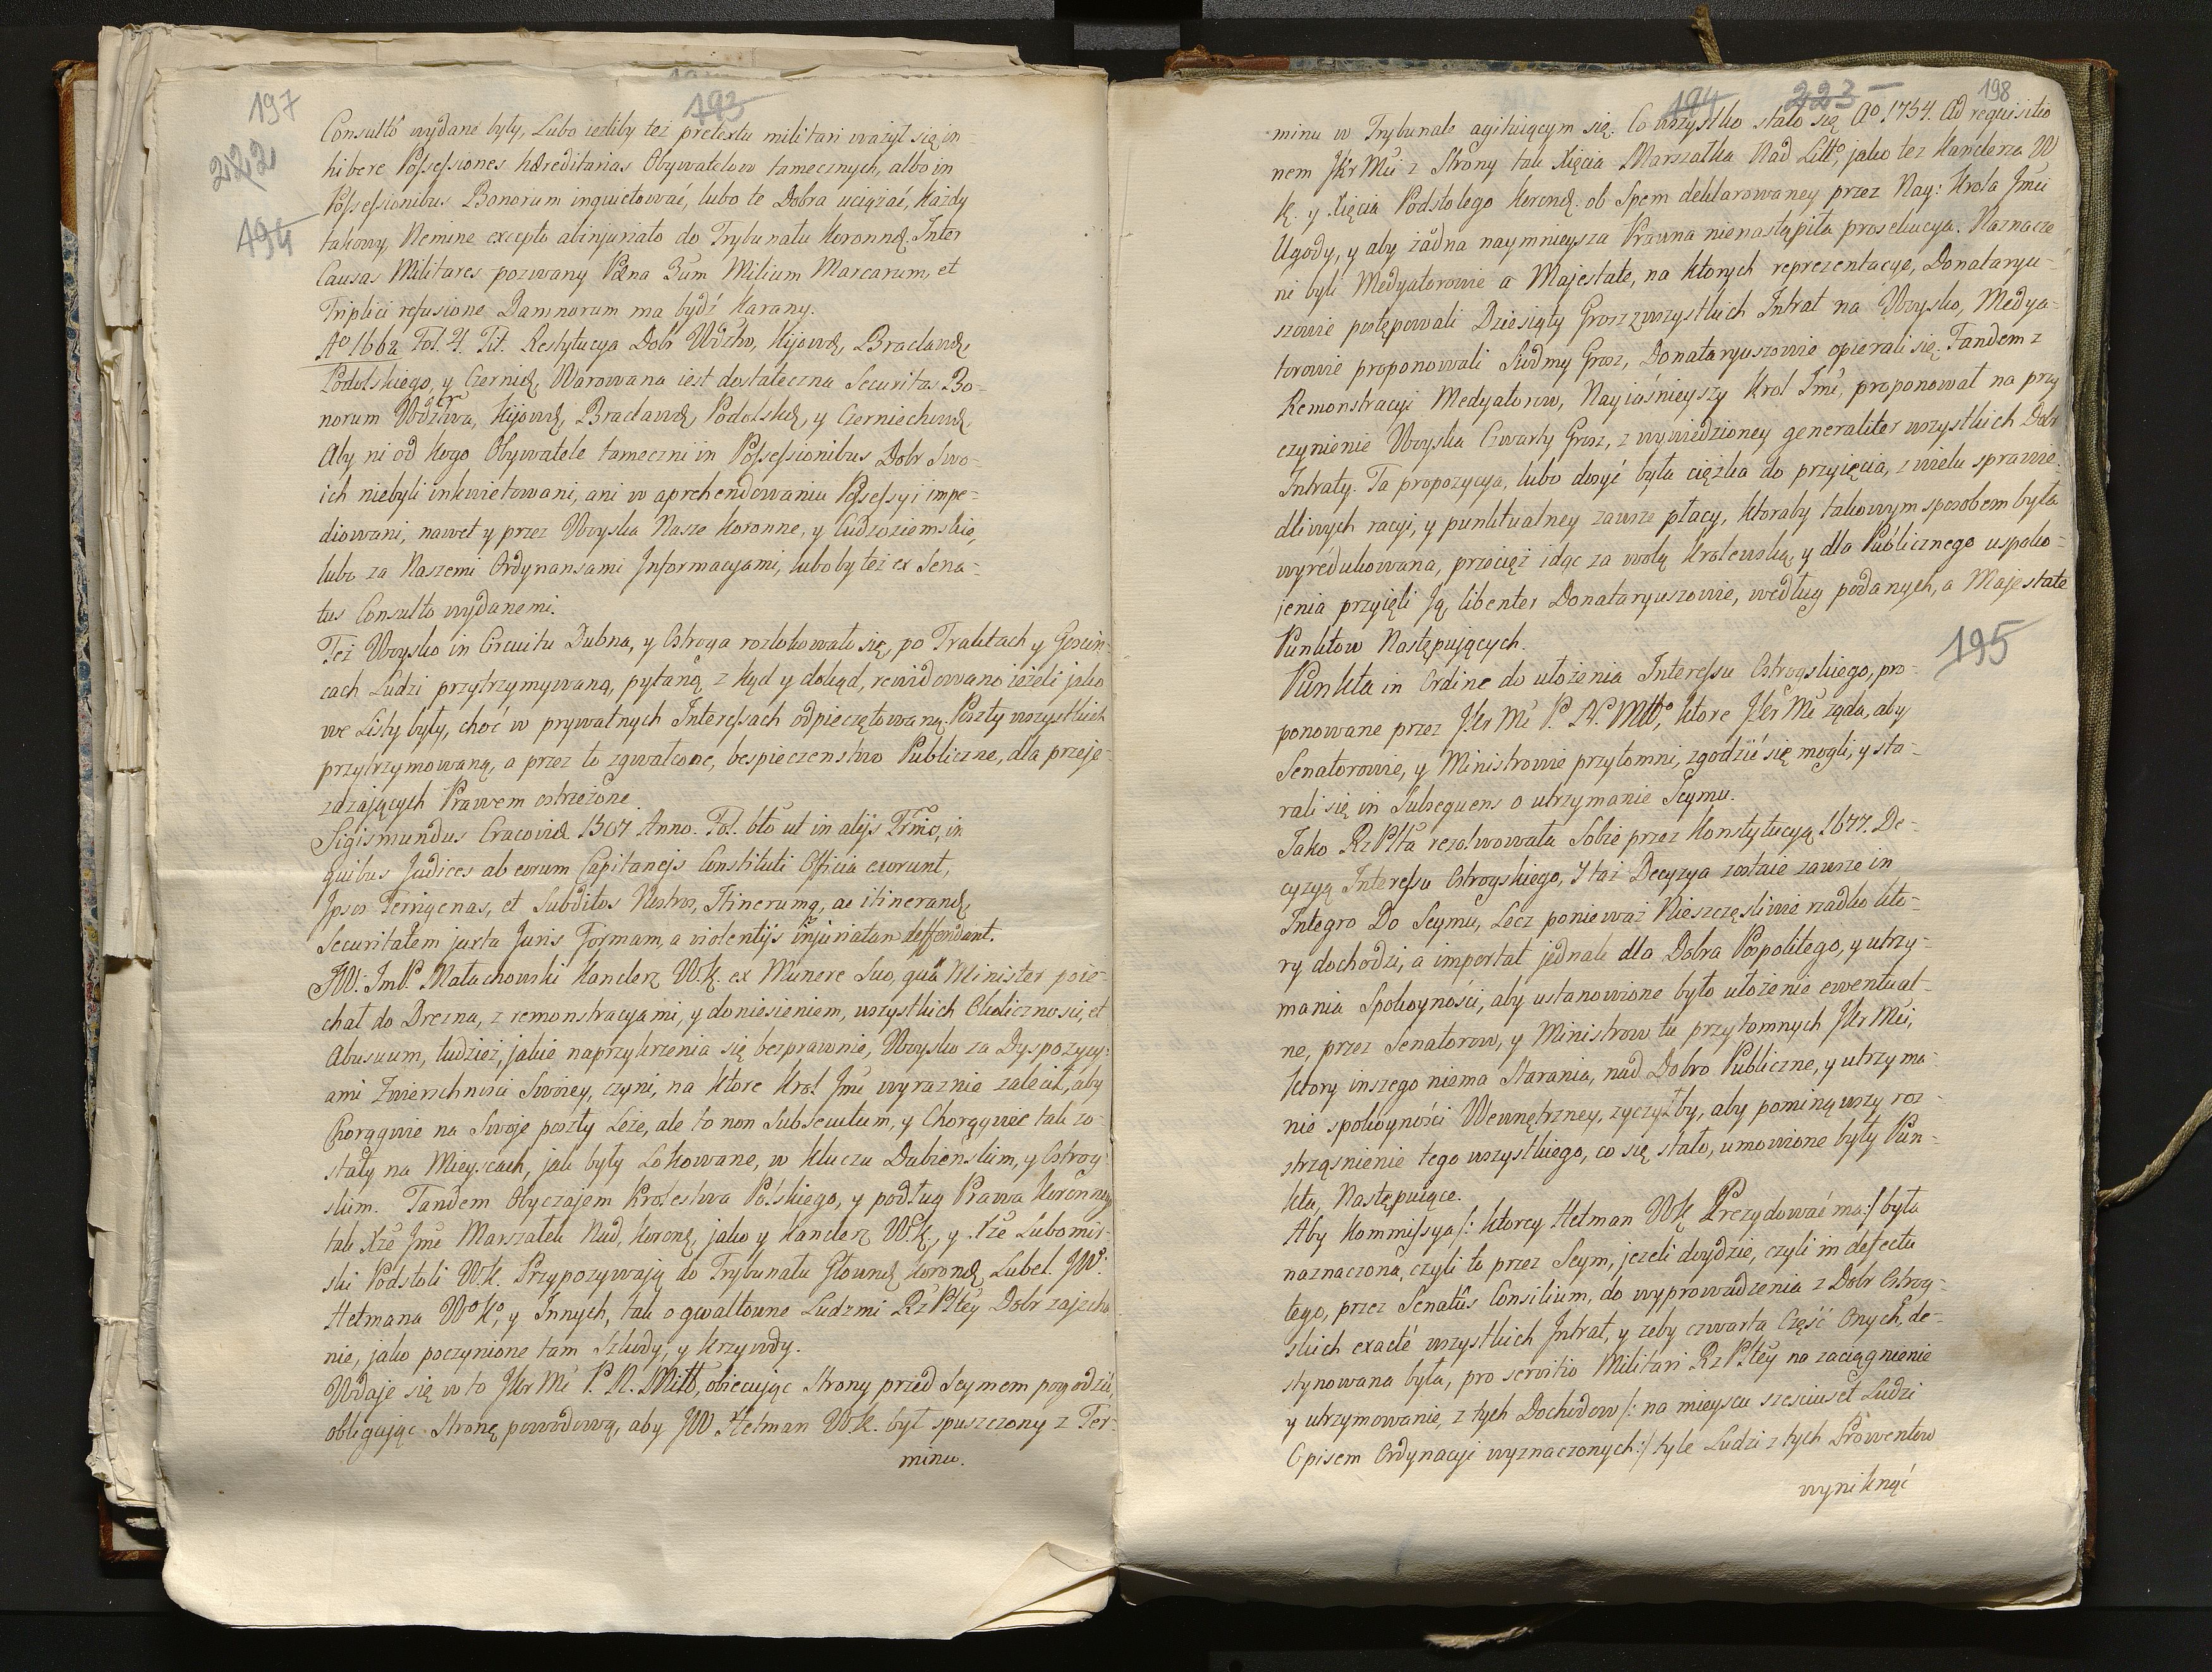 197
193
222
194
Consultó wydane były, Lubo ieżliby też pretextu militari ważył się in
hibere Possessiones hæreditarias Obywatelow tamecznych, albo in
Possessionibus Bonorum inquietować, lubo te Dobra uciążać, Każdy
takowy, Nemine excepto abinjuriato do Trybunału Koronnᶒ. Inter
Causas Militares pozwany Pæna 3um Milium Marcarum, et
Triplici refusione Damnorum ma bydź Karany.
Aº 1662 Fol. 4. Tit. Restytucya Dobr Wdztw, Kijowᶒ, Bracławᶒ
Podolskiego, y Czerniᶒ, Warowana iest dostateczna Securitas Bo-
norum Wdztwa, Kijowᶒ, Bracławᶒ, Podolskᶒ, y Czerniechowᶒ,
Aby ni od Kogo Obywatele tameczni in Possessionibus Dobr Swo-
ich niebyli inkwietowani, ani w aprehendowaniu Possessyi impe-
diowani, nawet y przez Woyska Nasze Koronne, y Cudzoziemskie,
lubo za Naszemi Ordynansami Informacyami, luboby też ex Sena-
tus Consulto wydanemi.
Też Woysko in Circuitu Dubna, y Ostroga rozlokowało się, po Traktach y Gościn-
cach Ludzi przytrzymywaną, pytaną, z kąd y dokąd, rewidowano ieżeli jako
we Listy były, choć w prywatnych Interessach odpieczętowaną. Poczty wszystkich
przytrzymowaną, a przez to zgwałcone, bespieczenstwo Publiczne, dla przeje-
zdzających Prawem ostrzeżone.
Sigismundus Cracoviæ 1507 Anno. Fol. 660 ut in alijs Trnis, in
quibus Judices ab eorum Capitaneis Constituti Officia exerunt,
Ipsos Terrigenas, et Subditos Nostros, Itinerumq, ac itinerandᶒ
Securitatem juxta Juris Formam, a violentijs injuriatum deffendant.
JW: JmP. Małachowski Kanclerz W.K. ex Munere Suo, qua Minister poie-
chał do Drezna, z remonstracyami, y doniesieniem, wszystkich Okoliczności, et
Abusuum, tudzież, jakie naprzykrzenia się bezprawnie, Woysko za Dyspozycy-
ami Zwierzchności Swoiey, czyni, na które Krol Jmć wyraznie zalecił, aby
Chorągwie na Swoje poszły Leże, ale to non Subsecutum, y Chorągwie tak zo-
stały na Mieyscach, jak były Lokowane, w Kluczu Dubienskim, y Ostrog-
skim. Tandem Obyczajem Krolestwa Polskiego, y podług Prawa Koronnego
tak Xże Jmć Marszałek Nad, Koronᶒ, jako y Kanclerz W.K., y Xże Lubomir-
ski Podstoli W.K. Przypozywają do Trybunału Głownᶒ Koronᶒ Lubel. JW.
Hetmana Wº Kº, y Innych, tak o gwałtowne Ludzmi RzPltey Dobr zajecha-
nie, jako poczynione tam Szkody, y Krzywdy.
Wdaje się w to JKr Mć P. N. Miłł, obiecując Strony przed Seymem pogodzić,
obligując Stronę powodową, aby JW Hetman W.K. był spuszczony z Ter-
minu.
194
223
198
minu w Trybunale agituiącym się. Co wszystko stało się Aº 1754. Ad requisitio
nem JKr Mci z Strony tak Xięcia Marszałka Nad Littº, jako też Kanclerza W
K. y Xięcia Podstolego Koronᶒ. ob Spem deklarowaney przez Nay: Krola Jmci
Ugody, y aby żadna naymnieysza Prawna nienastąpiła prosekucya. Naznacze
ni byli Medyatorowie a Majestate, na ktorych reprezentacye, Donataryu-
szowie postępowali Dziesiąty Grosz z wszystkich Intrat na Woysko, Medya-
torowie proponowali Siódmy Grosz, Donataryuszowie opierali się. Tandem z
Remonstracyi Medyatorow, Nayiaśnieyszy Krol Jmć, proponował na przy
czynienie Woyska Czwarty Grosz, z wywiedzioney generaliter wszystkich Dobr
Intraty. Ta propozycya, lubo dosyć była ciężka do przyięcia, z wielu sprawie-
dliwych racyi, y punktualney zawsze płacy, ktoraby takowym sposobem była
wyredukowana, przecięż idąc za wolą Krolewską, y dla Publicznego uspoko-
jenia przyięli Ją, libenter Donataryuszowie, według podanych, a Majestate
Punktow Następujących.
195
Punkta in Ordine do ułożenia Interessu Ostrogskiego, pro-
ponowane przez JKr Mć P. N. Młłº, ktore JKr Mć żąda, aby
Senatorowie, y Ministrowie przytomni, zgodzić się mogli, y sta-
rali się in Subsequens o utrzymanie Seymu.
Jako RzPlta rezolwowała Sobie przez Konstytucyą 1677. De-
cyzyą Interessu Ostrogskiego, I taż Decyzya zostaie zawsze in
Integro Do Seymu, Lecz ponieważ Nieszczęśliwie rzadko kto-
ry dochodzi, a importat jednak dla Dobra Pospolitego, y utrzy-
mania Spokoyności, aby ustanowione było ułożenie ewentual-
ne, przez Senatorow, y Ministrow tu przytomnych JKr Mci,
ktory inszego niema Starania, nad Dobro Publiczne, y utrzyma-
nie spokoyności Wewnętrzney, życzyłby, aby pominąwszy roz-
strząśnienie tego wszystkiego, co się stało, umowione były Pun-
kta, Następuiące.
Aby Kommissya /: ktorey Hetman WK Prezydować ma :/ była
naznaczona, czyli to przez Seym, jeżeli doydzie, czyli in defectu
tego, przez Senatûs Consilium, do wyprowadzenia z Dobr Ostrog-
skich exactè wszystkich Intrat, y żeby czwarta Część Onych, de-
stynowana była, pro servitio Militari RzPltey na zaciągnienie
y utrzymowanie, z tych Dochodow /: na mieyscu sześciuset Ludzi
Opisem Ordynacyi wyznaczonych :/ tyle Ludzi z tych Prowentow
wyniknąć